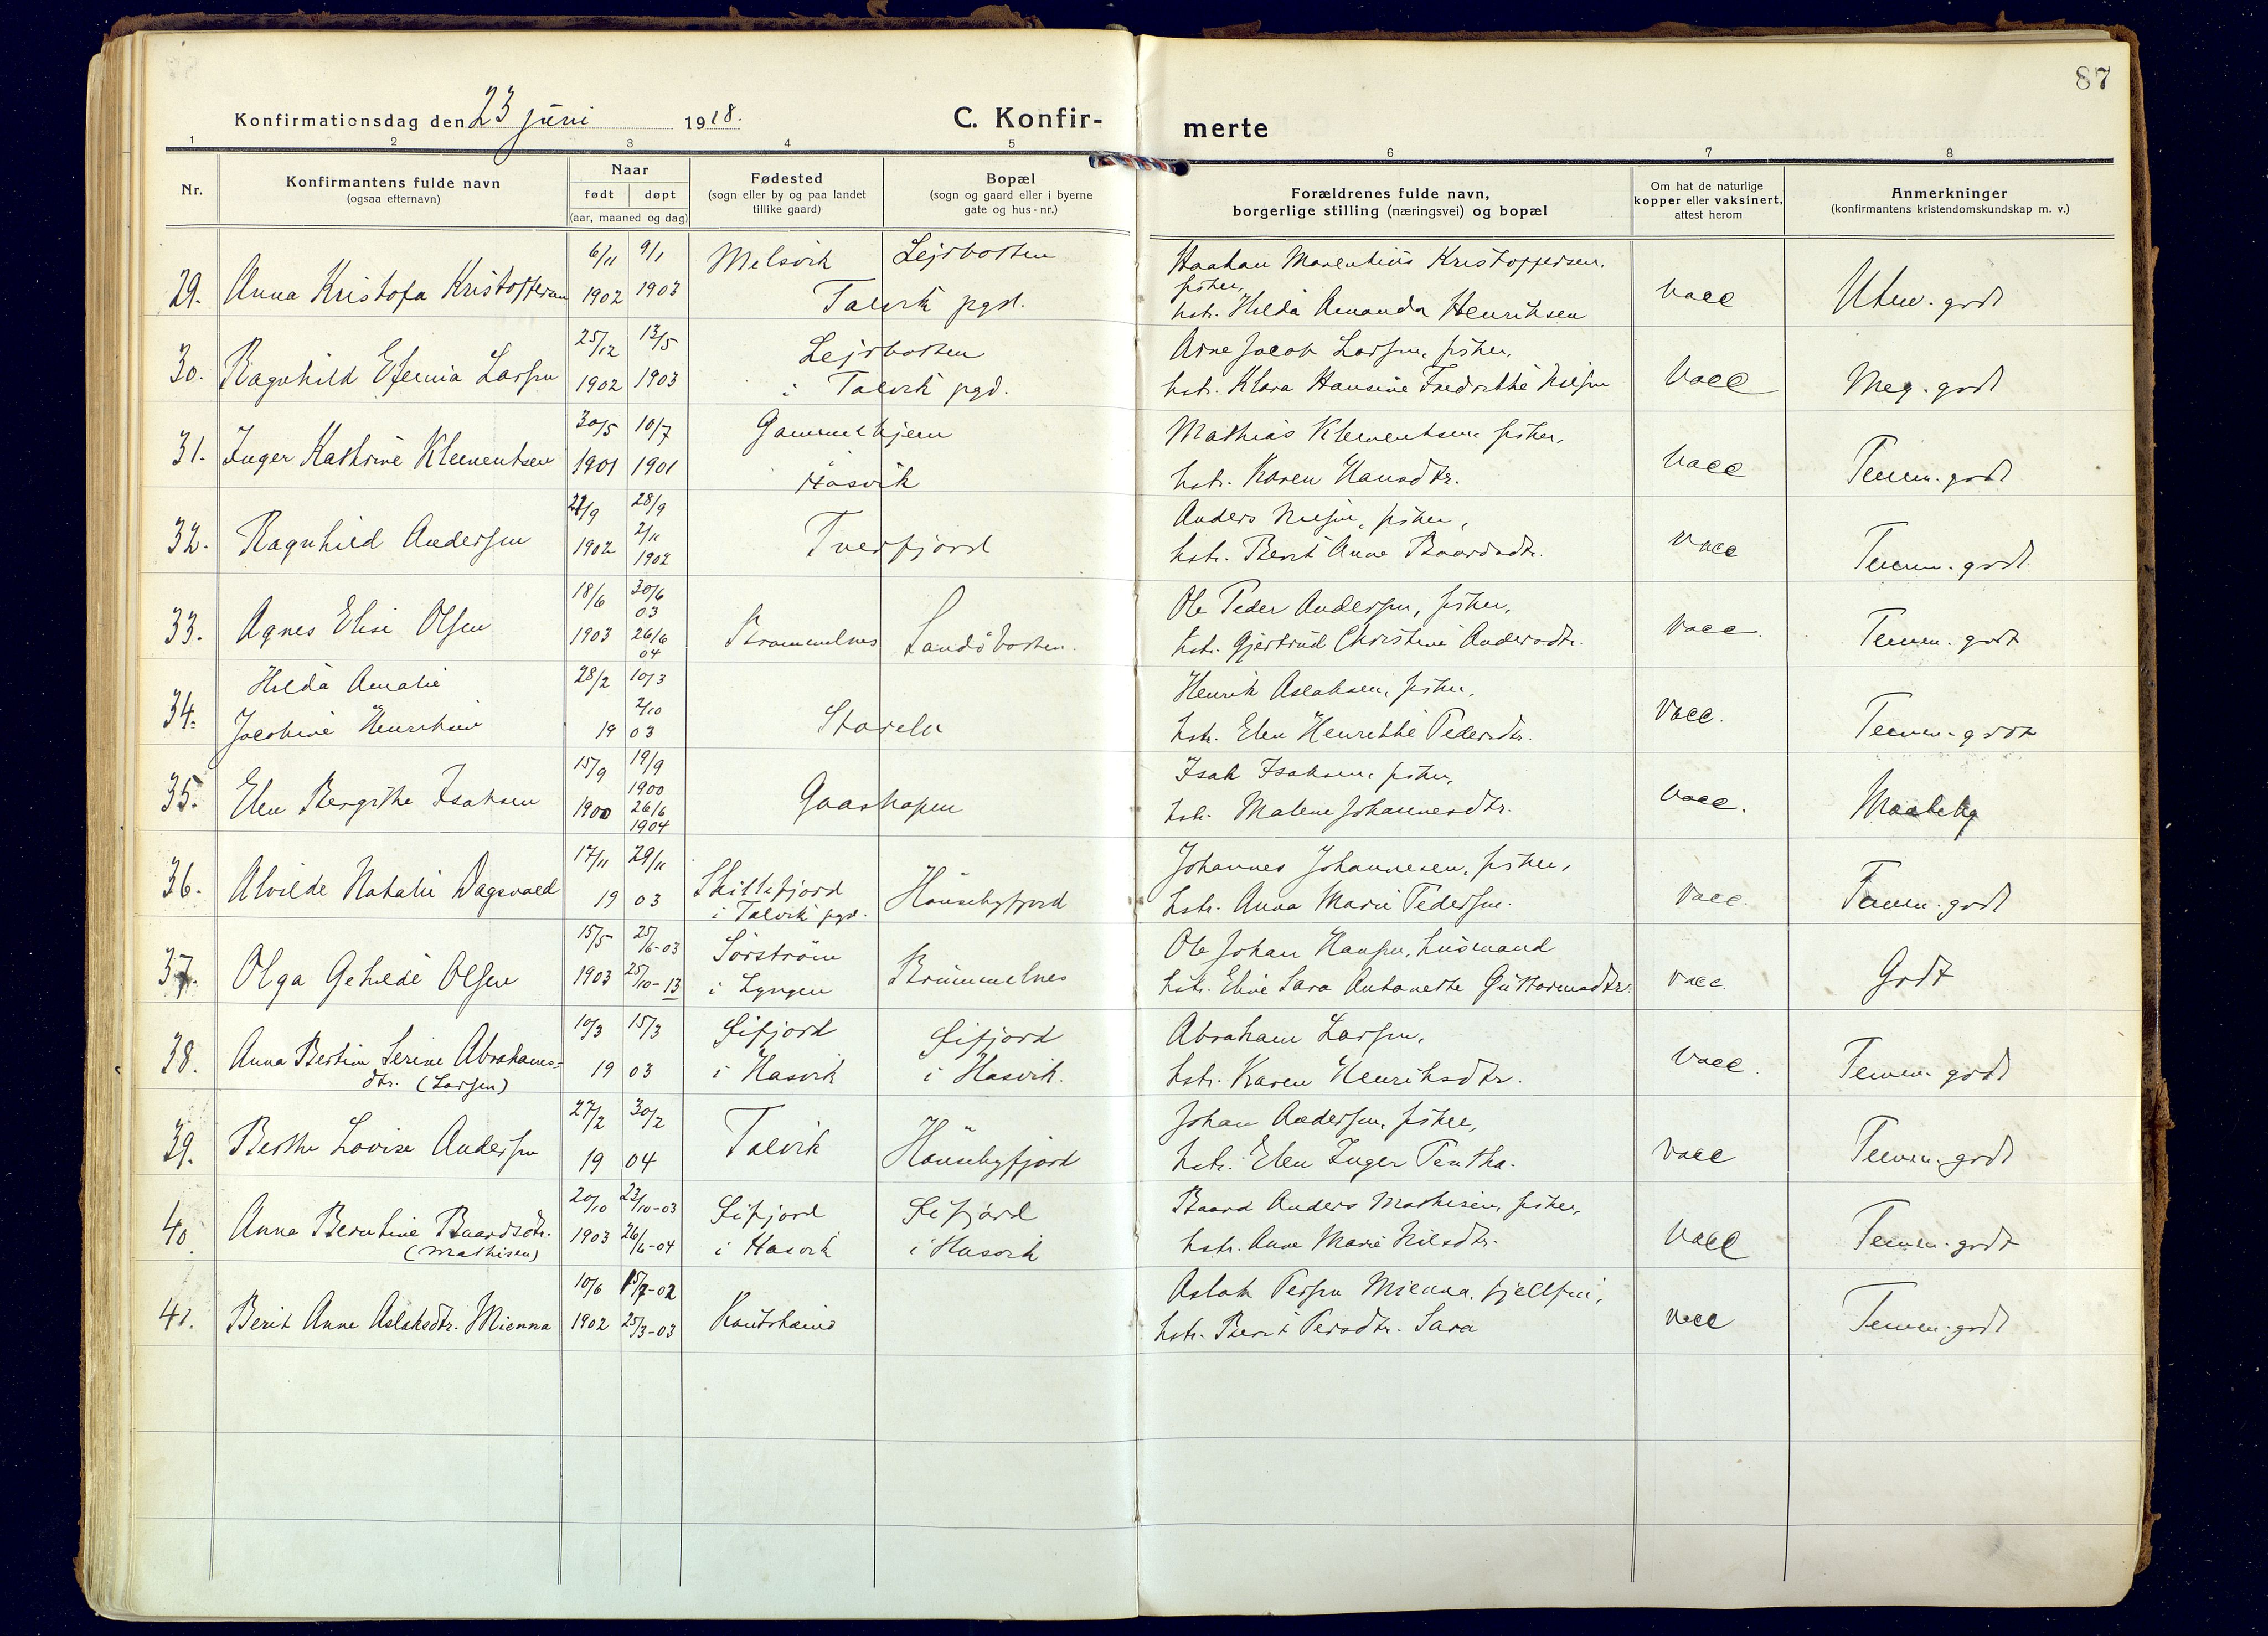 87
Konfirmationsdag den 23 juni 1918.
C. Konfir-
merte
1 2 3 4 5 6 7 8
Nr.
Konfirmantens fulde navn
(ogsaa efternavn)
Naar
født døpt
(aar, maaned og dag)
Fødested
(sogn eller by og paa landet
tillike gaard)
Bopæl
(sogn og gaard eller i byerne
gate og hus-nr.)
Forældrenes fulde navn,
borgerlige stilling (næringsvei) og bopæl
Om hat de naturlige
kopper eller vaksinert,
attest herom
Anmerkninger
(konfirmantens kristendomskundskap m. v.)
6/11 9/1 Melsvik Lejrbotten Haakan Marentius Kristoffersen,
29. Anna Kristofa Kristoffersen 1902 1903 Talvik pgd. fisker, vacc Utm. godt
hstr. Hilda Amanda Henriksen
25/12 13/5 Lejrbotten Arne Jacob Larsen, fisker,
30. Ragnhild Efenia Larsen 1902 1903 i Talvik pgd. hstr. Klara Hansine Fredrikke Nilsen vacc Meg. godt
30/5 10/7 Gammelhjem Mathias Klementsen, fisker,
31. Inger Kathrine Klementsen 1901 1901 Hasvik hstr. Karen Hansdtr. vacc Temm. godt
21/9 28/9 Anders Nilsen, fisker,
32. Ragnhild Andersen 1902 2/11 1902 Tverfjord hstr. Berit Anne Baardsdtr. vacc Temm. godt
18/6 30/6 03 Ole Peder Andersen, fisker,
33. Agnes Elise Olsen 1903 26/6 04 Brommelnes Sandöbotten. hstr. Gjertrud Christine Andersdtr. vacc. Temm. godt
Hilda Amalie 28/2 10/3 Henrik Aslaksen, fisker,
34. Jacobine Henriksen 2/10 19 03 Storelv hstr. Elen Henrikke Pedersdtr. vacc. Temm. godt
15/9 19/9 1900 Isak Isaksen, fisker,
35. Elen Bergithe Isaksen 1900 26/6 1904 Gaashopen hstr. Malene Johannesdtr. vacc. Maadelig
17/11 29/11 Skillefjord Johannes Johannesen, fisker,
36. Alvilde Natalie Dagsvold 19 03 i Talvik pgd. Hönsebyfjord hstr. Anna Marie Pedersen. vacc. Temm. godt
15/5 25/6-03 Sörström Ole Johan Hansen, husmand
37. Olga Gehilde Olsen 1903 25/10-13 i Lyngen Brummelnes hstr. Elise Sara Antonette Guttormsdtr. vacc. Godt
10/3 15/3 Sifjord Sifjord Abraham Larsen,
38. Anna Bertine Serine Abrahams- 19 03 i Hasvik i Hasvik. hstr. Karen Henriksdtr. vacc. Temm. godt
dtr. (Larsen)
27/2 30/2 Johan Andersen, fisker,
39. Berthe Lovise Andersen 19 04 Talvik Hönsebyfjord hstr. Elen Inger Pentha. vacc Temm. godt
20/10 23/10-03 Sifjord Sifjord Baard Anders Mathisen, fisker,
40. Anna Berntine Baardsdtr. 1903 26/6-04 i Hasvik i Hasvik hstr. Anne Marie Nilsdtr. vacc Temm. godt
(Mathisen)
10/6 15/7-02 Aslak Persen Mienna, fjellfin,
41. Berit Anne Aslaksdtr. Mienna 1902 25/3-03 Kautokeino hstr. Berit Persdtr. Sara vacc Temm. godt